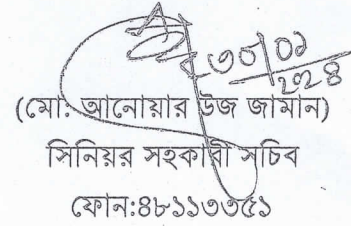 ৩০/০১
২০২৪
(মো: আনোয়ার উজ জামান)
সিনিয়র সহকারী সচিব
ফোন:৪৮১১০৩৫১